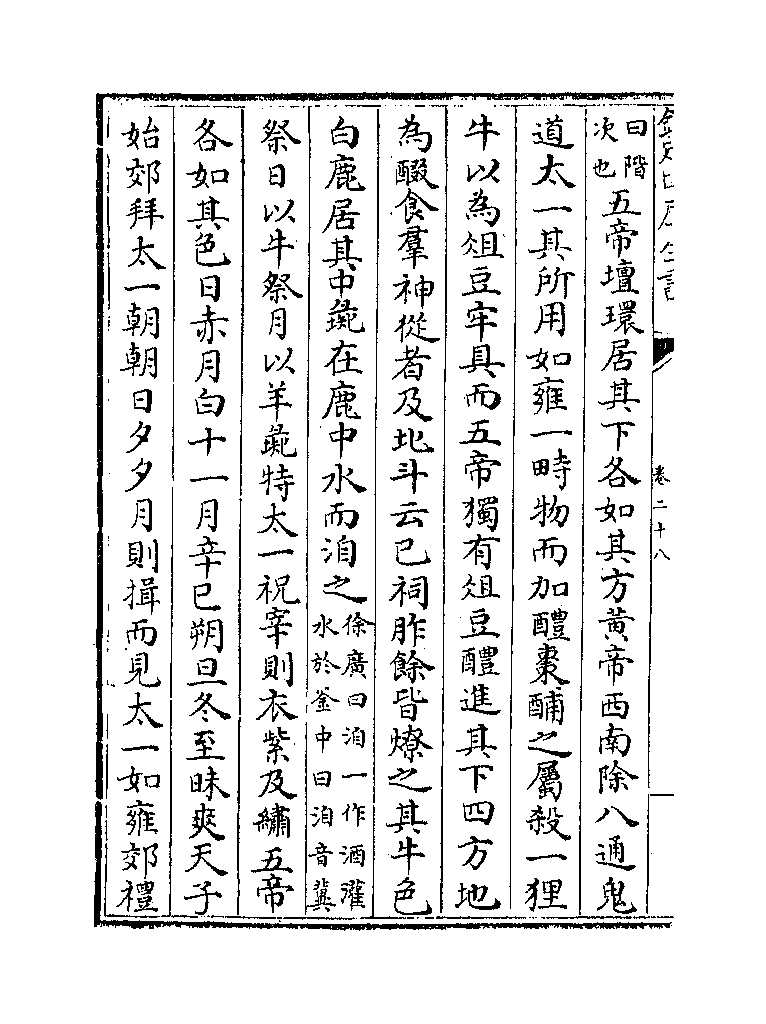 卷二十八
曰階次也五帝壇環居其下各如其方黄帝西南除八通鬼
道太一其所用如雍一畤物而加醴棗酺之屬殺一狸
牛以為俎豆牢具而五帝獨有俎豆醴進其下四方地
為醊食羣神從者及北斗云已祠胙餘皆燎之其牛色
白鹿居其中彘在鹿中水而洎之徐廣曰洎一作酒灌水於釜中曰洎音冀
祭日以牛祭月以羊彘特太一祝宰則衣紫及繡五帝
各如其色日赤月白十一月辛巳朔旦冬至昧爽天子
始郊拜太一朝朝日夕夕月則揖而見太一如雍郊禮